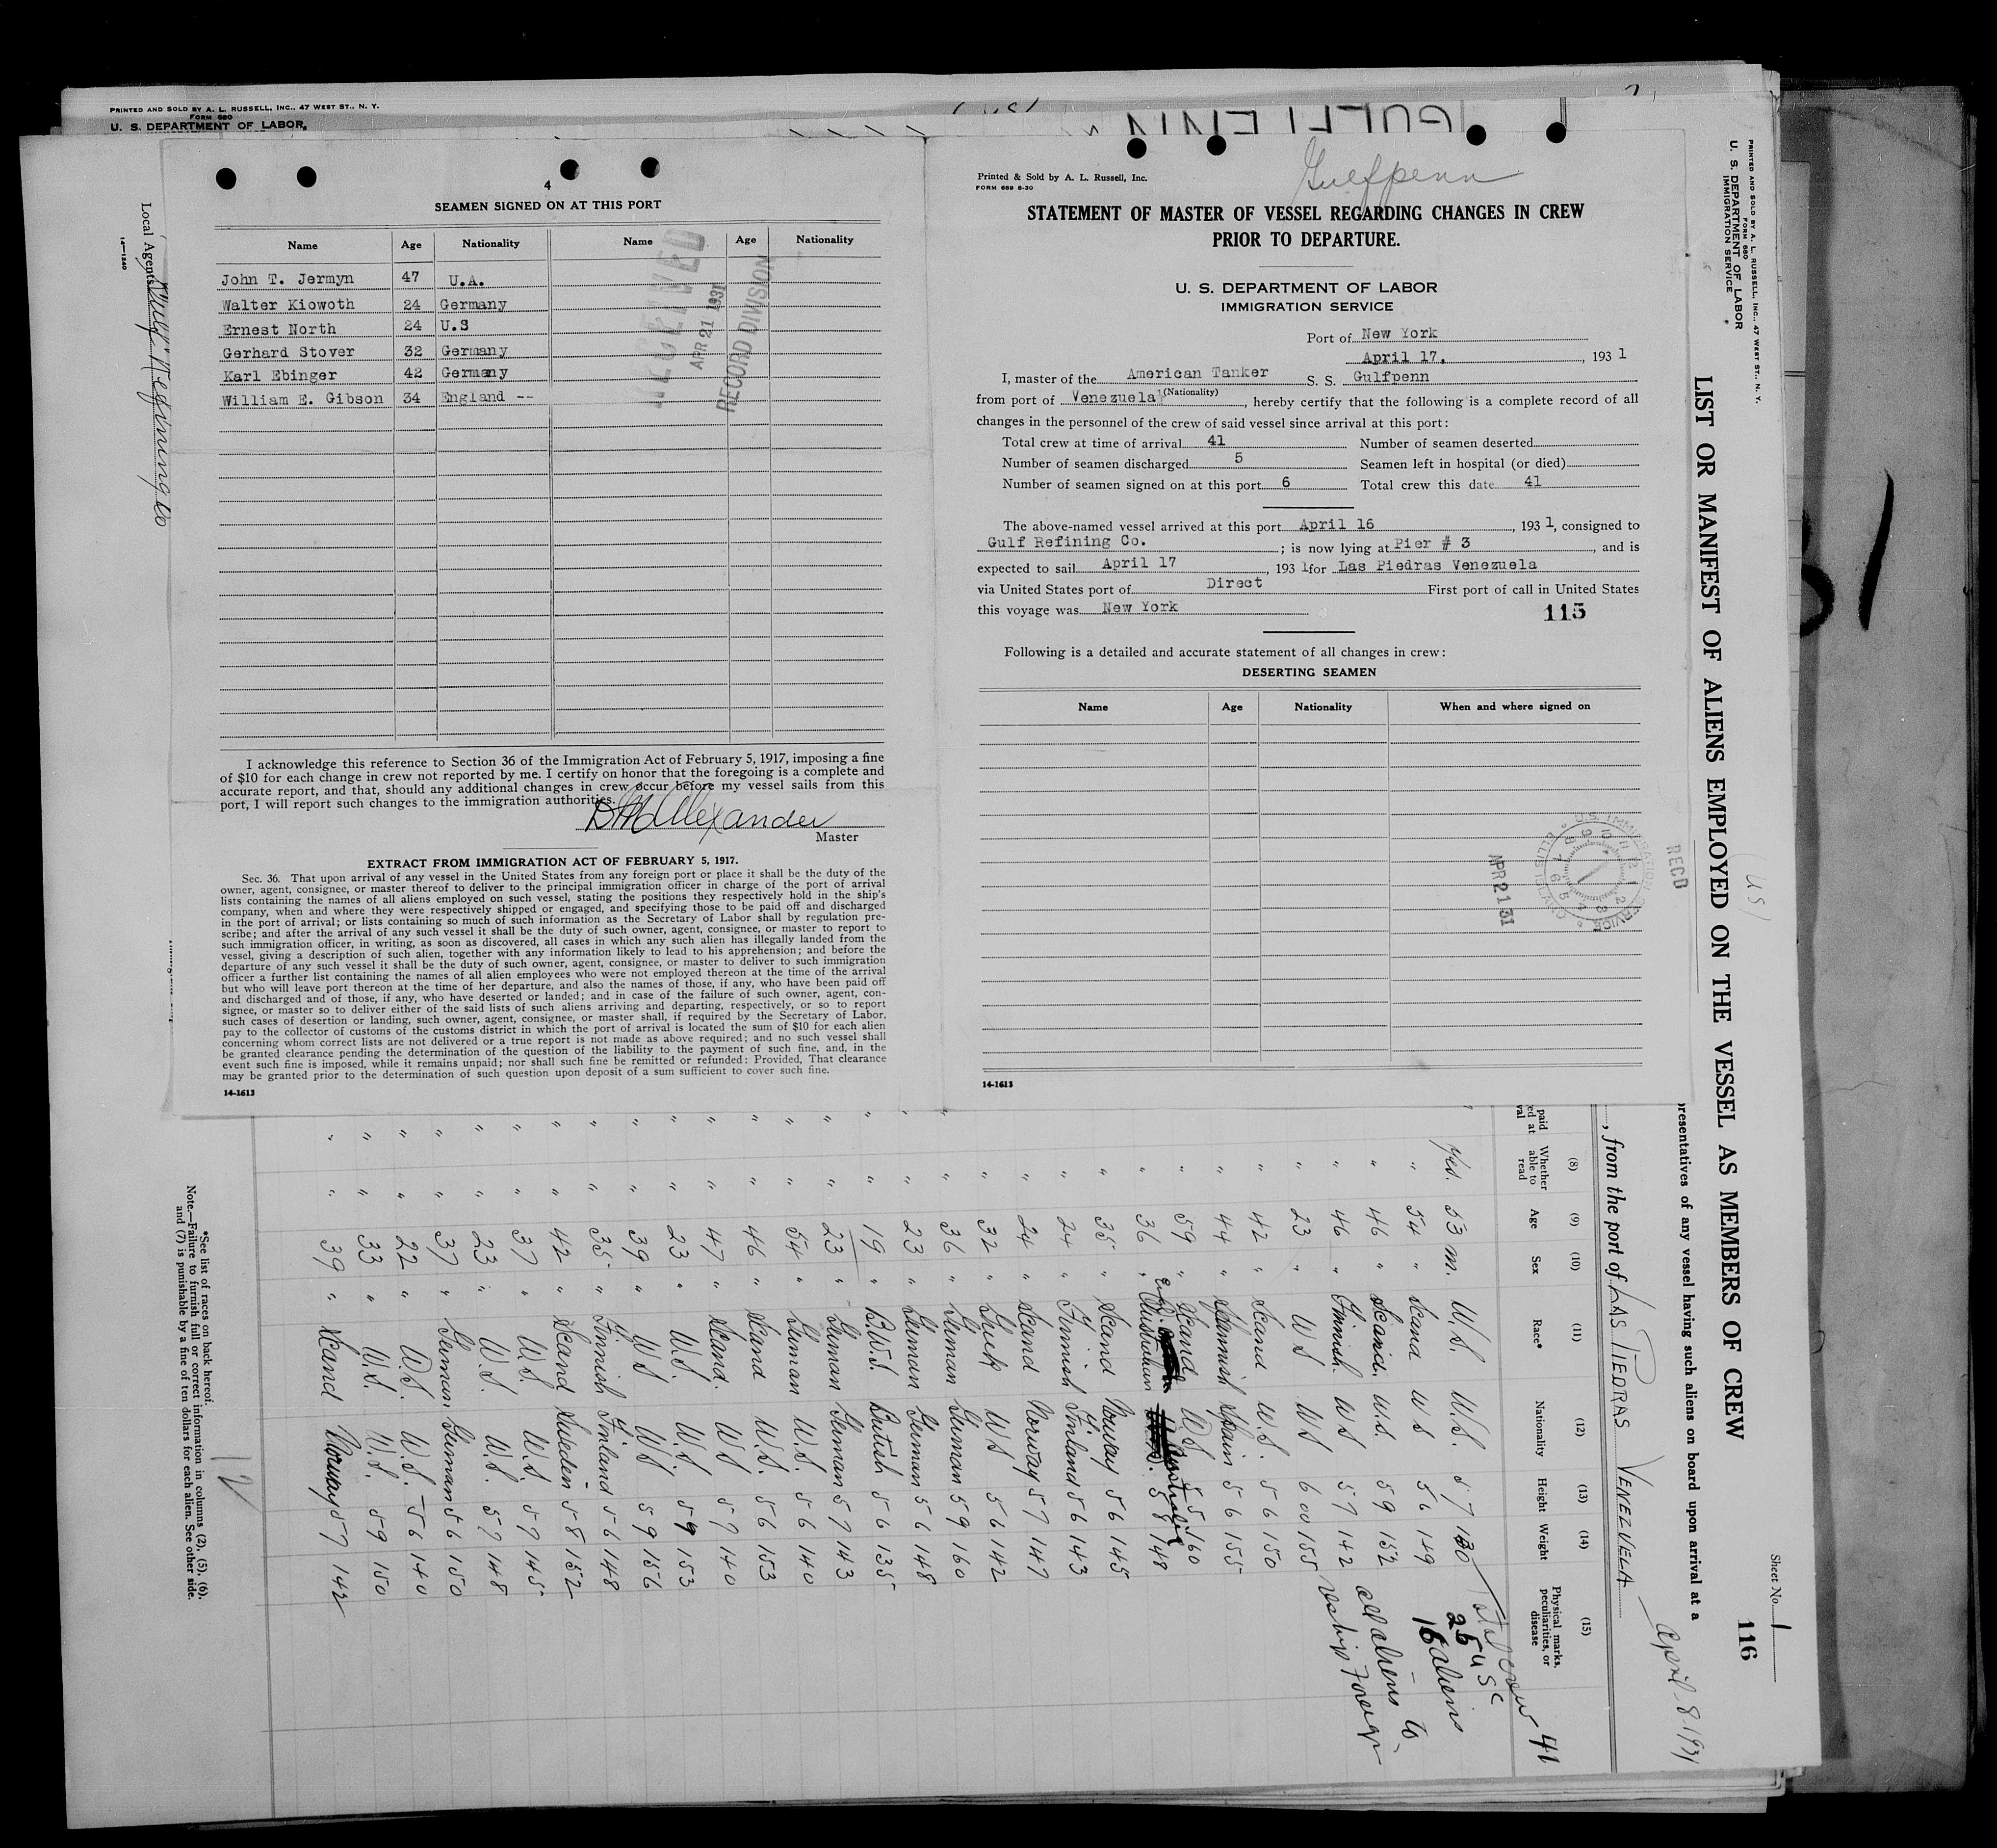 PRINTED AND SOLD BY A. L. RUSSELL, INC., 47 WEST ST., N. Y.
FORM 680
U. S. DEPARTMENT OF LABOR
Local Agents
Gulf Refining Co
14—1240
4
SEAMEN SIGNED ON AT THIS PORT
Name Age Nationality Name Age Nationality
John T. Jermyn 47 U.A.
Walter Kiowoth 24 Germany
Ernest North 24 U.S
Gerhard Stover 32 Germany
Karl Ebinger 42 Germany
William E. Gibson 34 England --
RECEIVED
APR 21 1931
RECORD DIVISION
I acknowledge this reference to Section 36 of the Immigration Act of February 5, 1917, imposing a fine
of $10 for each change in crew not reported by me. I certify on honor that the foregoing is a complete and
accurate report, and that, should any additional changes in crew occur before my vessel sails from this
port, I will report such changes to the immigration authorities.
Alexander
Master
EXTRACT FROM IMMIGRATION ACT OF FEBRUARY 5, 1917.
Sec. 36. That upon arrival of any vessel in the United States from any foreign port or place it shall be the duty of the
owner, agent, consignee, or master thereof to deliver to the principal immigration officer in charge of the port of arrival
lists containing the names of all aliens employed on such vessel, stating the positions they respectively hold in the ship's
company, when and where they were respectively shipped or engaged, and specifying those to be paid off and discharged
in the port of arrival; or lists containing so much of such information as the Secretary of Labor shall by regulation pre-
scribe; and after the arrival of any such vessel it shall be the duty of such owner, agent, consignee, or master to report to
such immigration officer, in writing, as soon as discovered, all cases in which any such alien has illegally landed from the
vessel, giving a description of such alien, together with any information likely to lead to his apprehension; and before the
departure of any such vessel it shall be the duty of such owner, agent, consignee, or master to deliver to such immigration
officer a further list containing the names of all alien employees who were not employed thereon at the time of the arrival
but who will leave port thereon at the time of her departure, and also the names of those, if any, who have been paid off
and discharged and of those, if any, who have deserted or landed; and in case of the failure of such owner, agent, con-
signee, or master so to deliver either of the said lists of such aliens arriving and departing, respectively, or so to report
such cases of desertion or landing, such owner, agent, consignee, or master shall, if required by the Secretary of Labor,
pay to the collector of customs of the customs district in which the port of arrival is located the sum of $10 for each alien
concerning whom correct lists are not delivered or a true report is not made as above required; and no such vessel shall
be granted clearance pending the determination of the question of the liability to the payment of such fine, and, in the
event such fine is imposed, while it remains unpaid; nor shall such fine be remitted or refunded: Provided, That clearance
may be granted prior to the determination of such question upon deposit of a sum sufficient to cover such fine.
14-1613
GULFPENN
Gulfpenn
Printed & Sold by A. L. Russell, Inc.
FORM 689 6-30
STATEMENT OF MASTER OF VESSEL REGARDING CHANGES IN CREW
PRIOR TO DEPARTURE.
U. S. DEPARTMENT OF LABOR
IMMIGRATION SERVICE
Port of New York
April 17, 1931
I, master of the American Tanker S. S. Gulfpenn
(Nationality)
from port of Venezuela, hereby certify that the following is a complete record of all
changes in the personnel of the crew of said vessel since arrival at this port:
Total crew at time of arrival 41 Number of seamen deserted
Number of seamen discharged 5 Seamen left in hospital (or died)
Number of seamen signed on at this port 6 Total crew this date 41
The above-named vessel arrived at this port April 16, 1931, consigned to
Gulf Refining Co.; is now lying at Pier # 3, and is
expected to sail April 17, 1931 for Las Piedras Venezuela
via United States port of Direct First port of call in United States
this voyage was New York
115
Following is a detailed and accurate statement of all changes in crew:
DESERTING SEAMEN
Name Age Nationality When and where signed on
APR 21 31
U.S. IMMIGRATION SERVICE ELLIS ISLAND
RECD
14-1613
PRINTED AND SOLD BY A. L. RUSSELL, INC., 47 WEST ST., N. Y.
FORM 680
U. S. DEPARTMENT OF LABOR
IMMIGRATION SERVICE
LIST OR MANIFEST OF ALIENS EMPLOYED ON THE VESSEL AS MEMBERS OF CREW
Sheet No. 1
116
(US)
presentatives of any vessel having such aliens on board upon arrival at a
April 8 1931
, from the port of LAS PIEDRAS VENEZUELA
(8) (9) (10) (11) (12) (13) (14) (15)
Whether able to read Age Sex Race* Nationality Height Weight Physical marks, peculiarities, or disease
Yes. 53 m. U.S. U.S. 5 7 130
" 54 " Scand U S 5 6 149
" 46 " Scand. U.S. 5 9 152
" 46 " Finnish. U S 5 7 142
" 23 " U S U S 6 00 155
" 42 " Scand U.S. 5 6 150
" 44 " Spanish Spain 5 6 155
" 59 " Scand U.S. 5 5 160
" 36 " Australian 5 8 148
" 35 " Scand Norway 5 6 145
" 24 " Finnish Finland 5 6 143
" 24 " Scand Norway 5 7 147
" 32 " Greek U S 5 6 142
" 36 " German German 5 9 160
" 23 " German German 5 6 148
" 19 " B.W.I. British 5 6 135
" 23 " German German 5 7 143
" 54 " German U.S. 5 6 140
" 46 " Scand U.S. 5 6 153
" 47 " Scand. U S 5 7 140
" 23 " U.S. U.S. 5 9 153
" 39 " U S U S 5 9 156
" 35 " Finnish Finland 5 6 148
" 42 " Scand Sweden 5 8 152
" 37 " U S U.S. 5 7 145
" 23 " U.S. U.S. 5 7 148
" 37 " German German 5 6 150
" 22 " U.S. U.S. 5 6 140
" 33 " U.S. U.S. 5 9 150
" 39 " Scand Norway 5 7 142
Total crew 41
25 USC
16 aliens
all aliens to
reship Foreign
*See list of races on back hereof.
Note.—Failure to furnish full or correct information in columns (2), (5), (6),
and (7) is punishable by a fine of ten dollars for each alien. See other side.
12